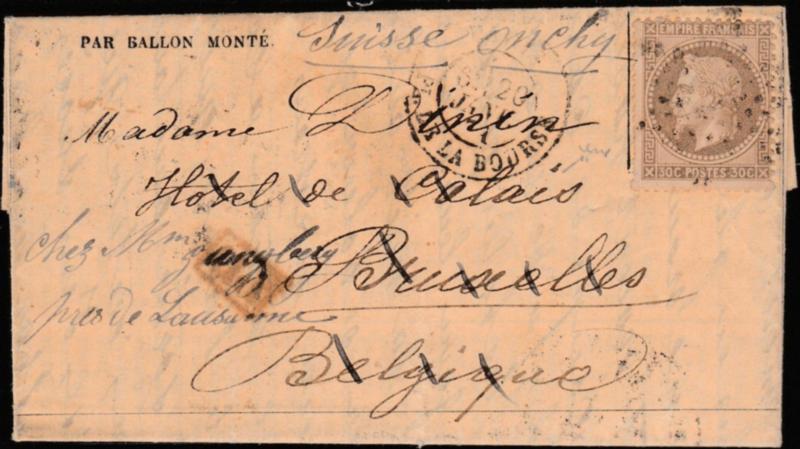 PAR BALLON MONTÉ.
Suisse Onchy
EMPIRE FRANÇAIS
30C POSTES 30C
28
LA BOURSE
Madame
Hotel de Calais
chez Mme
Bruxelles
près de Lausanne
Belgique